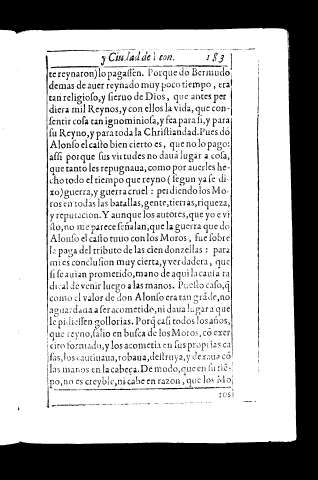 y Ciudad de Leon. 183
te reynaron) lo pagassen. Porque do Bermudo
demas de auer reynado muy poco tiempo, era
tan religioso, y sieruo de Dios, que antes per
diera mil Reynos, y con ellos la vida, que con-
sentir cosa tan ignominiosa, y fea para si, y para
su Reyno, y para toda la Christiandad. Pues dō
Alonso el casto bien cierto es, que no lo pago:
assi porque sus virtudes no dauā lugar a cosa,
que tanto les repugnaua, como por auerles he-
cho todo el tiempo que reyno (segun ya se di-
xo) guerra, y guerra cruel: perdiendo los Mo-
ros en todas las batallas, gente, tierras, riqueza,
y reputacion. Y aunque los autores, que yo e vi
sto, no me parece señalan, que la guerra que dō
Alonso el casto tuuo con los Moros, fue sobre
la paga del tributo de las cien donzellas: para
mi es conclusion muy cierta, y verdadera, que
si se auian prometido, mano de aqui la causa ra
dical de venir luego a las manos. Puesto caso, q̄
como el valor de don Alonso era tan grāde, no
aguardaua a ser acometido, ni daua lugar a que
le pidiessen gollorias. Porq̄ casi todos los años,
que reyno, salio en busca de los Moros, cō exer
cito formado, y los acometia en sus proprias ca
sas, los cautiuaua, robaua, destruya, y dexaua cō
las manos en la cabeça. De modo, que en su tiē-
po, no es creyble, ni cabe en razon, que los Mo
ros